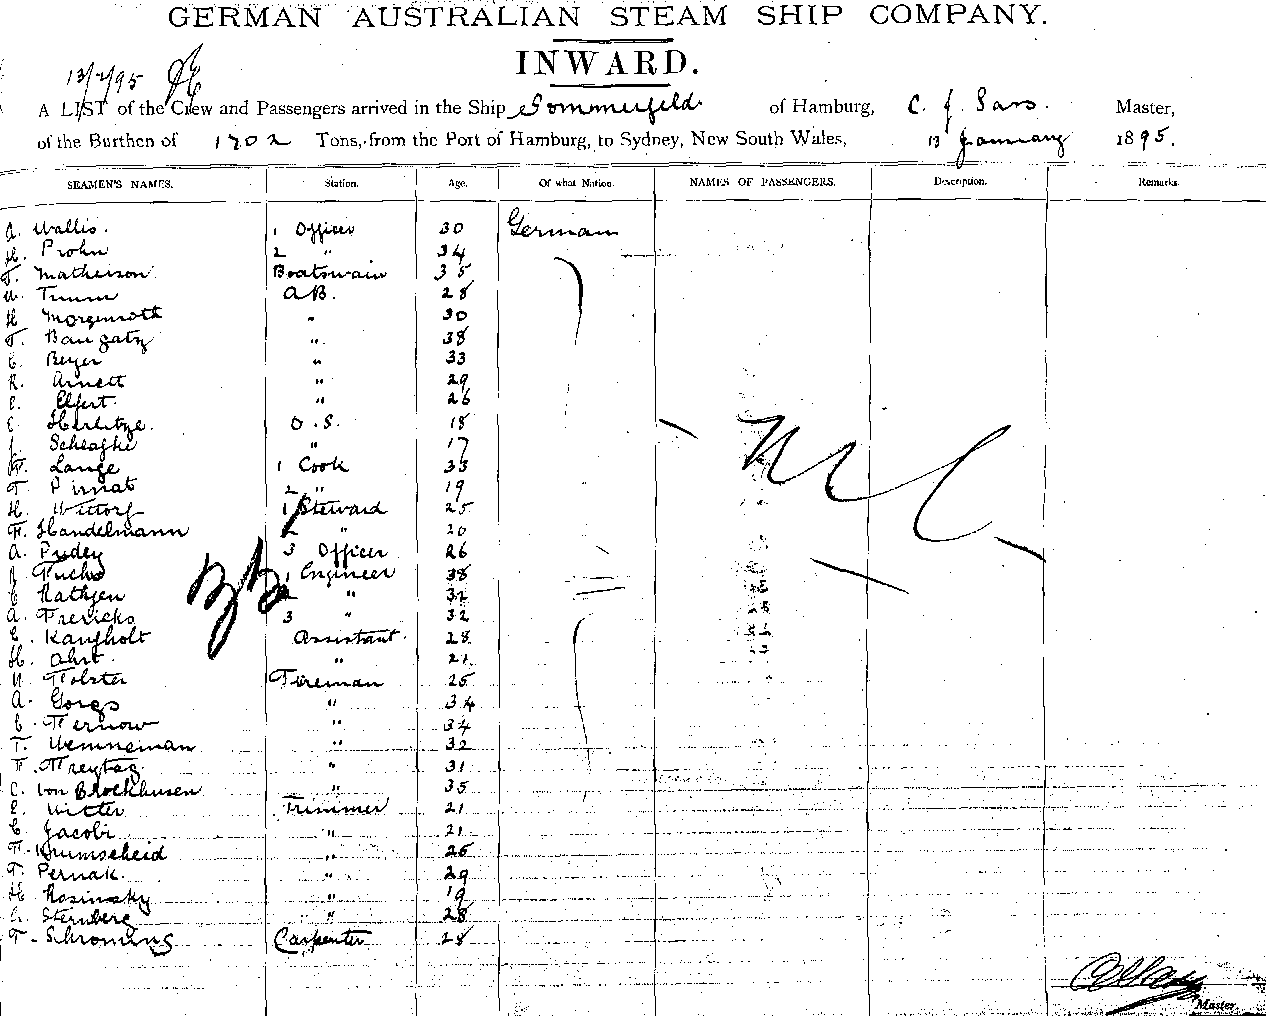 GERMAN AUSTRALIAN STEAM SHIP COMPANY.
INWARD.
13/1/95
A LIST of the Crew and Passengers arrived in the Ship Sommerfeld of Hamburg, C. J. Sass. Master,
of the Burthen of 1702 Tons, from the Port of Hamburg, to Sydney, New South Wales, 13 January 1895.
SEAMEN'S NAMES. Station. Age. Of what Nation. NAMES OF PASSENGERS. Description. Remarks.
A. Wallis. 1 Officer 30 German
H. Prohn 2 " 34
T. Matheison Boatswain 35
W. Timm A.B. 28
H. Morgenroth " 30
F. Bangatz " 38
C. Beyer " 33
R. Arnett " 29
E. Elfert " 26
E. Herlitze. O.S. 18
J. " 17
F. Lange 1 Cook 33
F. Pinnat 2 " 19
H. Wittorf 1 Steward 25
F. Handelmann 2 " 20
A. Pudey 3 Officer 26
J. Fuchs 1 Engineer 38
C. Rathjen 2 " 32
A. Frericks 3 " 32
E. Kangholt Assistant 28
H. Ahrt. " 21
N. Tolster Fireman 25
A. Gorgs " 34
C. Ternow " 34
T. Wenneman " 32
F. Freytag. " 31
C. von Brockhusen " 35
E. Witter Trimmer 21
C. Jacobi " 21
F. Krumscheid " 25
F. Pernak. " 29
H. Rosinsky " 19
G. Sternberg " 28
F. Schroming Carpenter 28
Nil
Master